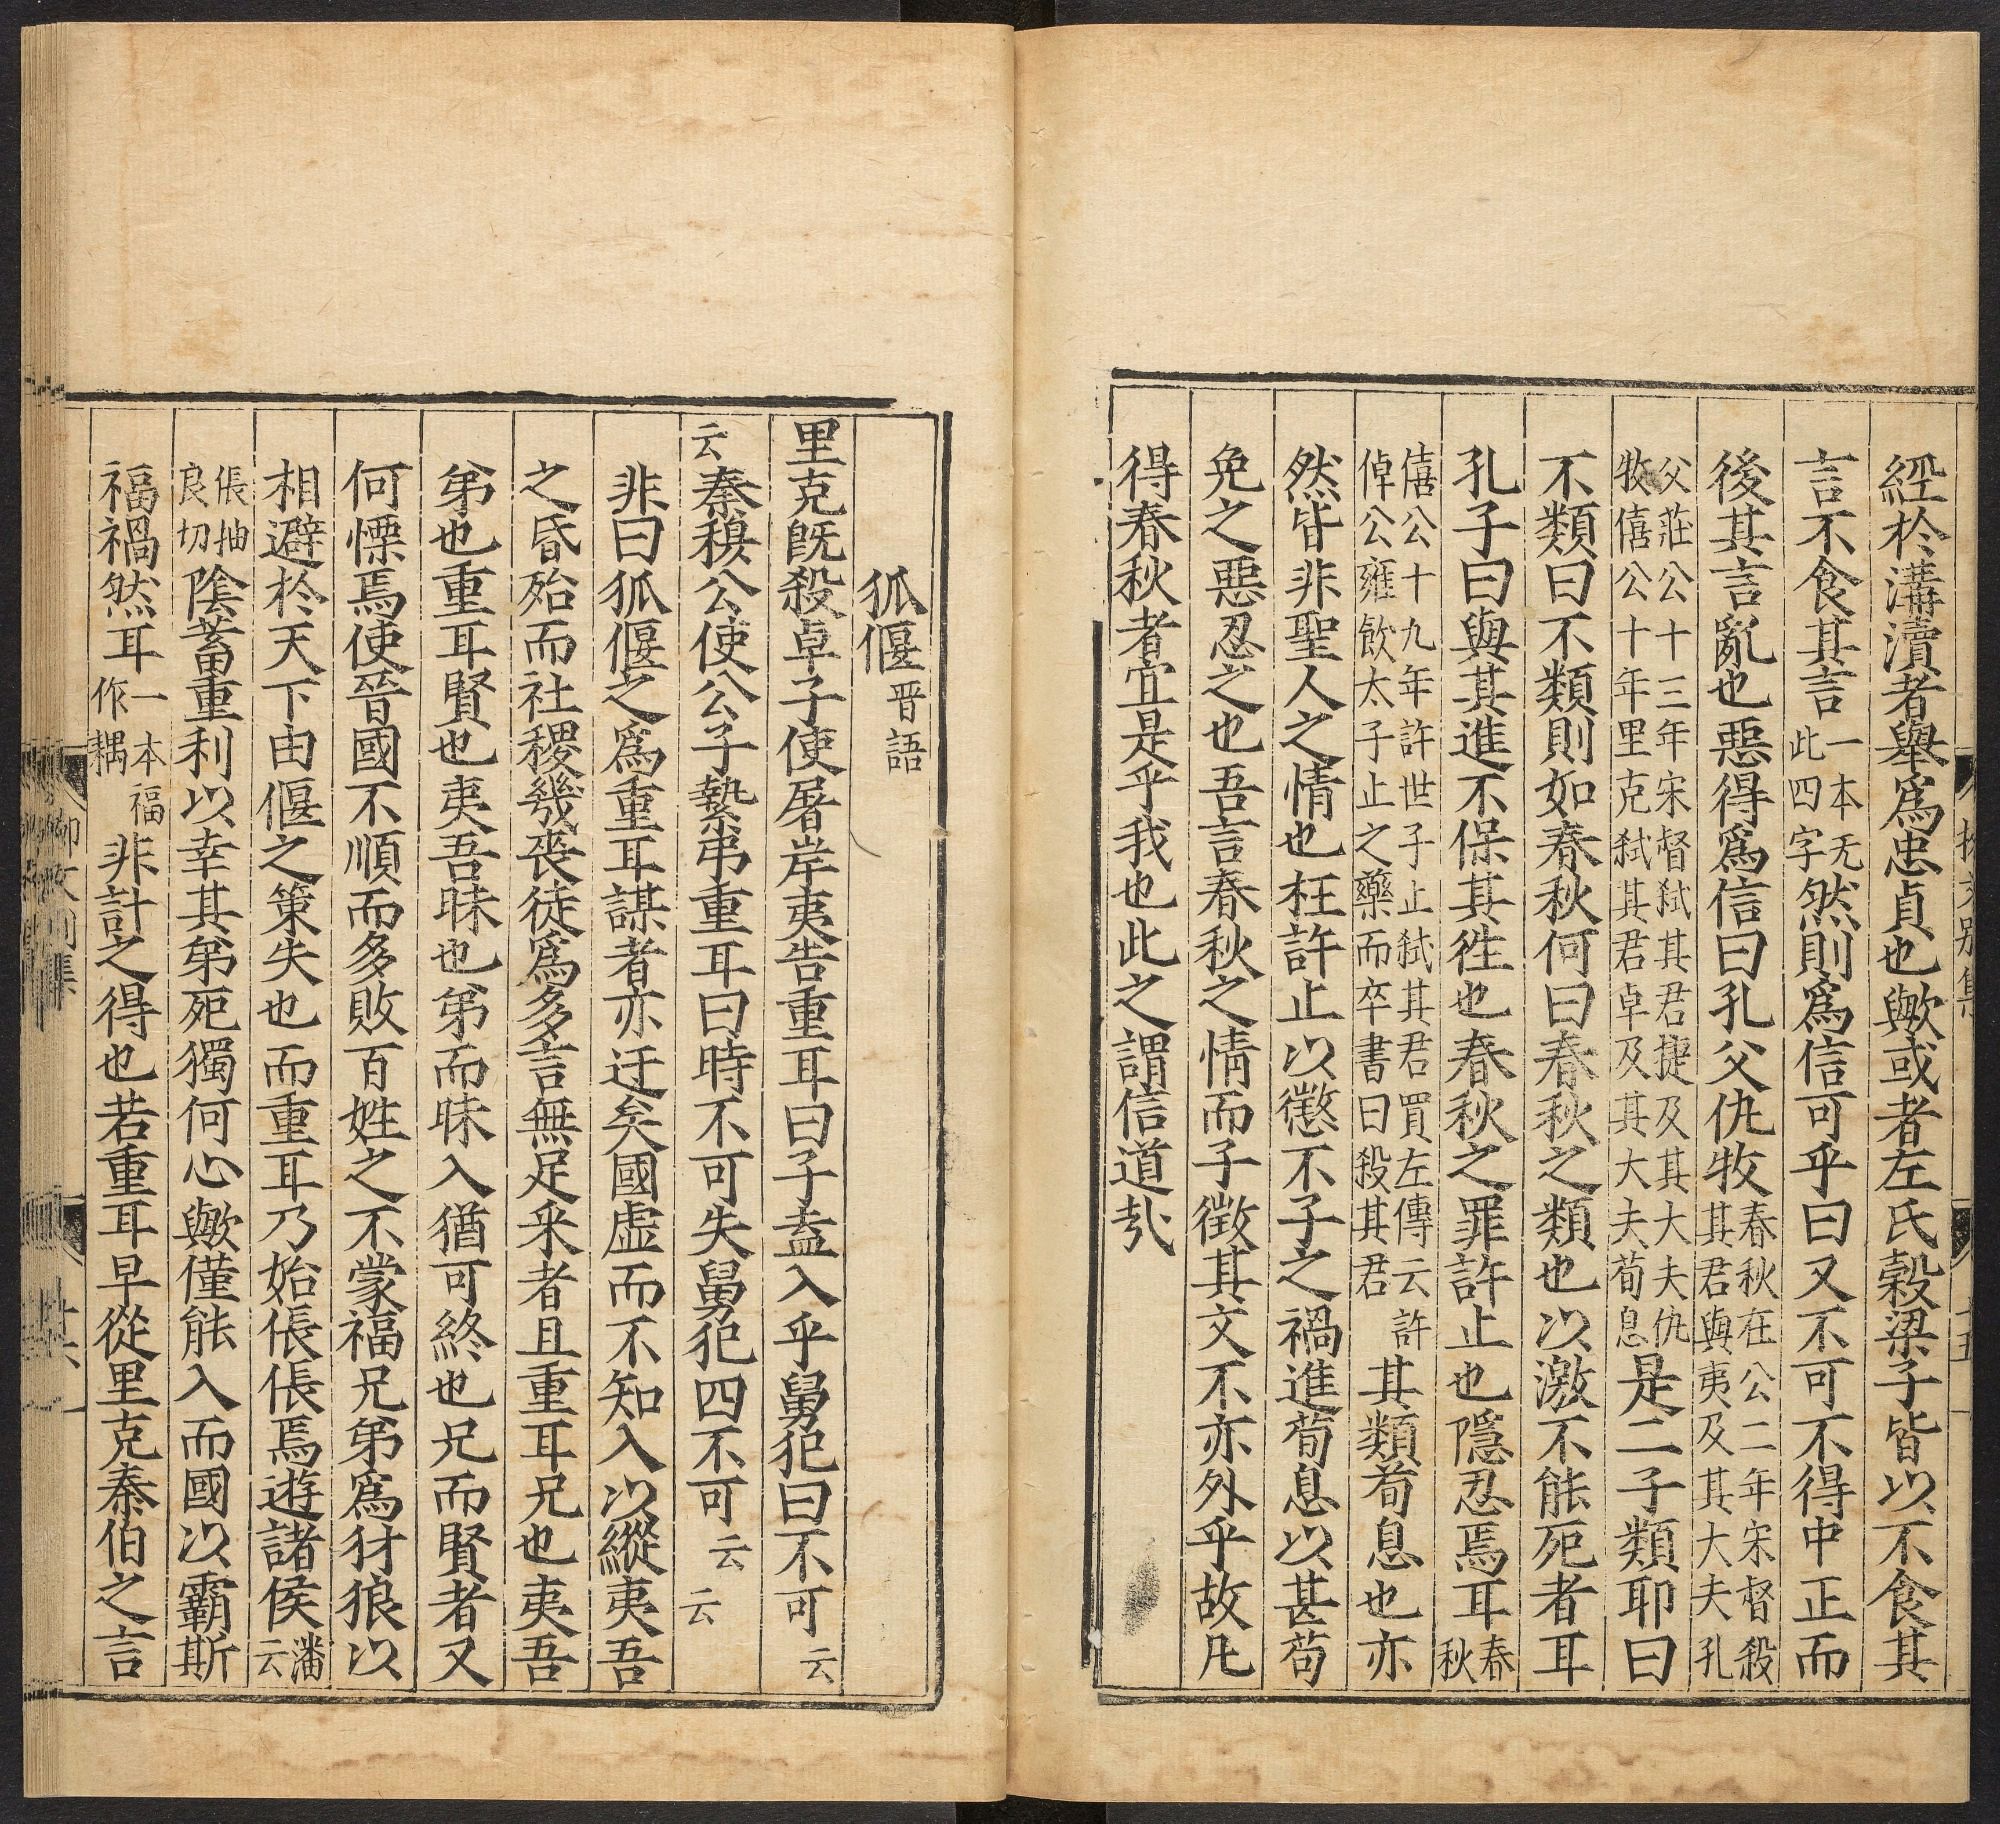 經於溝瀆者舉爲忠貞也歟或者左氏穀梁子皆以不食其
言不食其言一本无此四字然則爲信可乎曰又不可不得中正而
後其言亂也惡得爲信曰孔父仇牧春秋在公二年宋督殺其君與夷及其大夫孔
父莊公十三年宋督弒其君捷及其大夫仇牧僖公十年里克弒其君卓及其大夫荀息是二子類耶曰
不類曰不類則如春秋何曰春秋之類也以激不能死者耳
孔子曰與其進不保其徃也春秋之罪許止也隱忍焉耳春秋
僖公十九年許世子止弒其君買左傳云許悼公雍飲太子止之藥而卒書曰殺其君其類荀息也亦
然皆非聖人之情也枉許止以懲不子之禍進荀息以甚苟
免之惡忍之也吾言春秋之情而子徵其文不亦外乎故凡
得春秋者宜是乎我也此之謂信道㢤
狐偃晋語
里克旣殺卓子使屠岸夷告重耳曰子盍入乎舅犯曰不可云
云秦穆公使公子縶弔重耳曰時不可失舅犯四不可云云
非曰狐偃之爲重耳謀者亦迂矣國虚而不知入以縱夷吾
之昏殆而社稷㡬喪徒爲多言無足采者且重耳兄也夷吾
弟也重耳賢也夷吾昧也弟而昧入猶可終也兄而賢者又
何慄焉使晉國不順而多敗百姓之不蒙福兄弟爲犲狼以
相避於天下由偃之策失也而重耳乃始倀倀焉遊諸侯潘云
倀抽良切陰蓄重利以幸其弟死獨何心歟僅能入而國以霸斯
福禍然耳一本福作耦非計之得也若重耳早從里克秦伯之言
柳文別集
十六